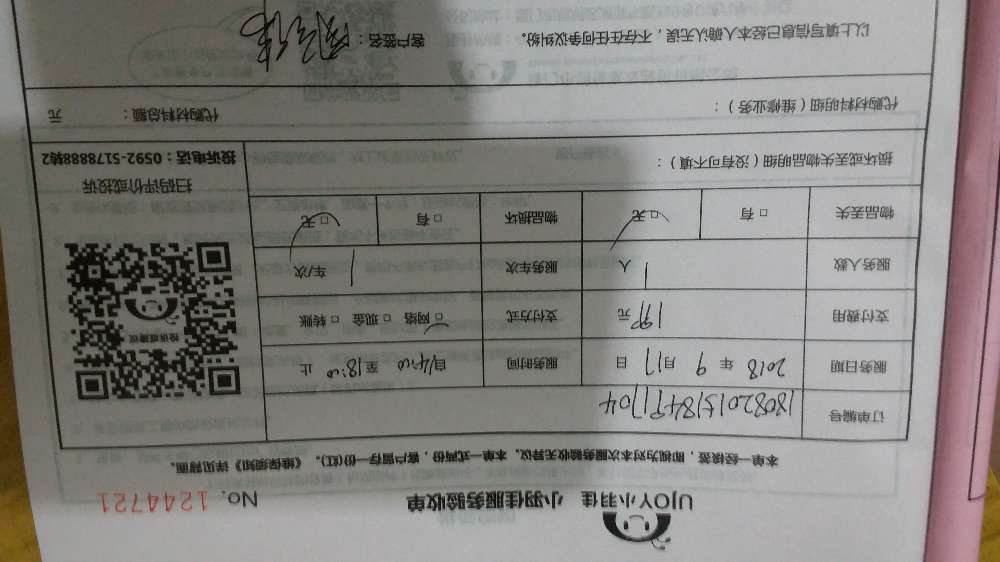 UJOY小羽佳 小羽佳服务验收单 No. 1244721
本单一经签，即视为对本次服务验收无异议。本单一式两份，客户留存一份(红)。《维保须知》详见背面。
订单编号
服务日期 2018 年 9 月 17 日 服务时间 自14:00 至 18:00 止
支付费用 元 支付方式 □ 网络 □ 现金 □ 转账
服务人数 1 人 服务车次 1 车/次
物品丢失 □ 有 □ 无 物品损坏 □ 有 □ 无
损坏或丢失物品明细（没有可不填）：
投诉或建议
扫码评价或投诉
投诉电话：0592-5178888转2
代购材料明细（维修业务）： 代购材料总额： 元
以上填写信息已经本人确认无误，不存在任何争议纠纷。 客户签名：